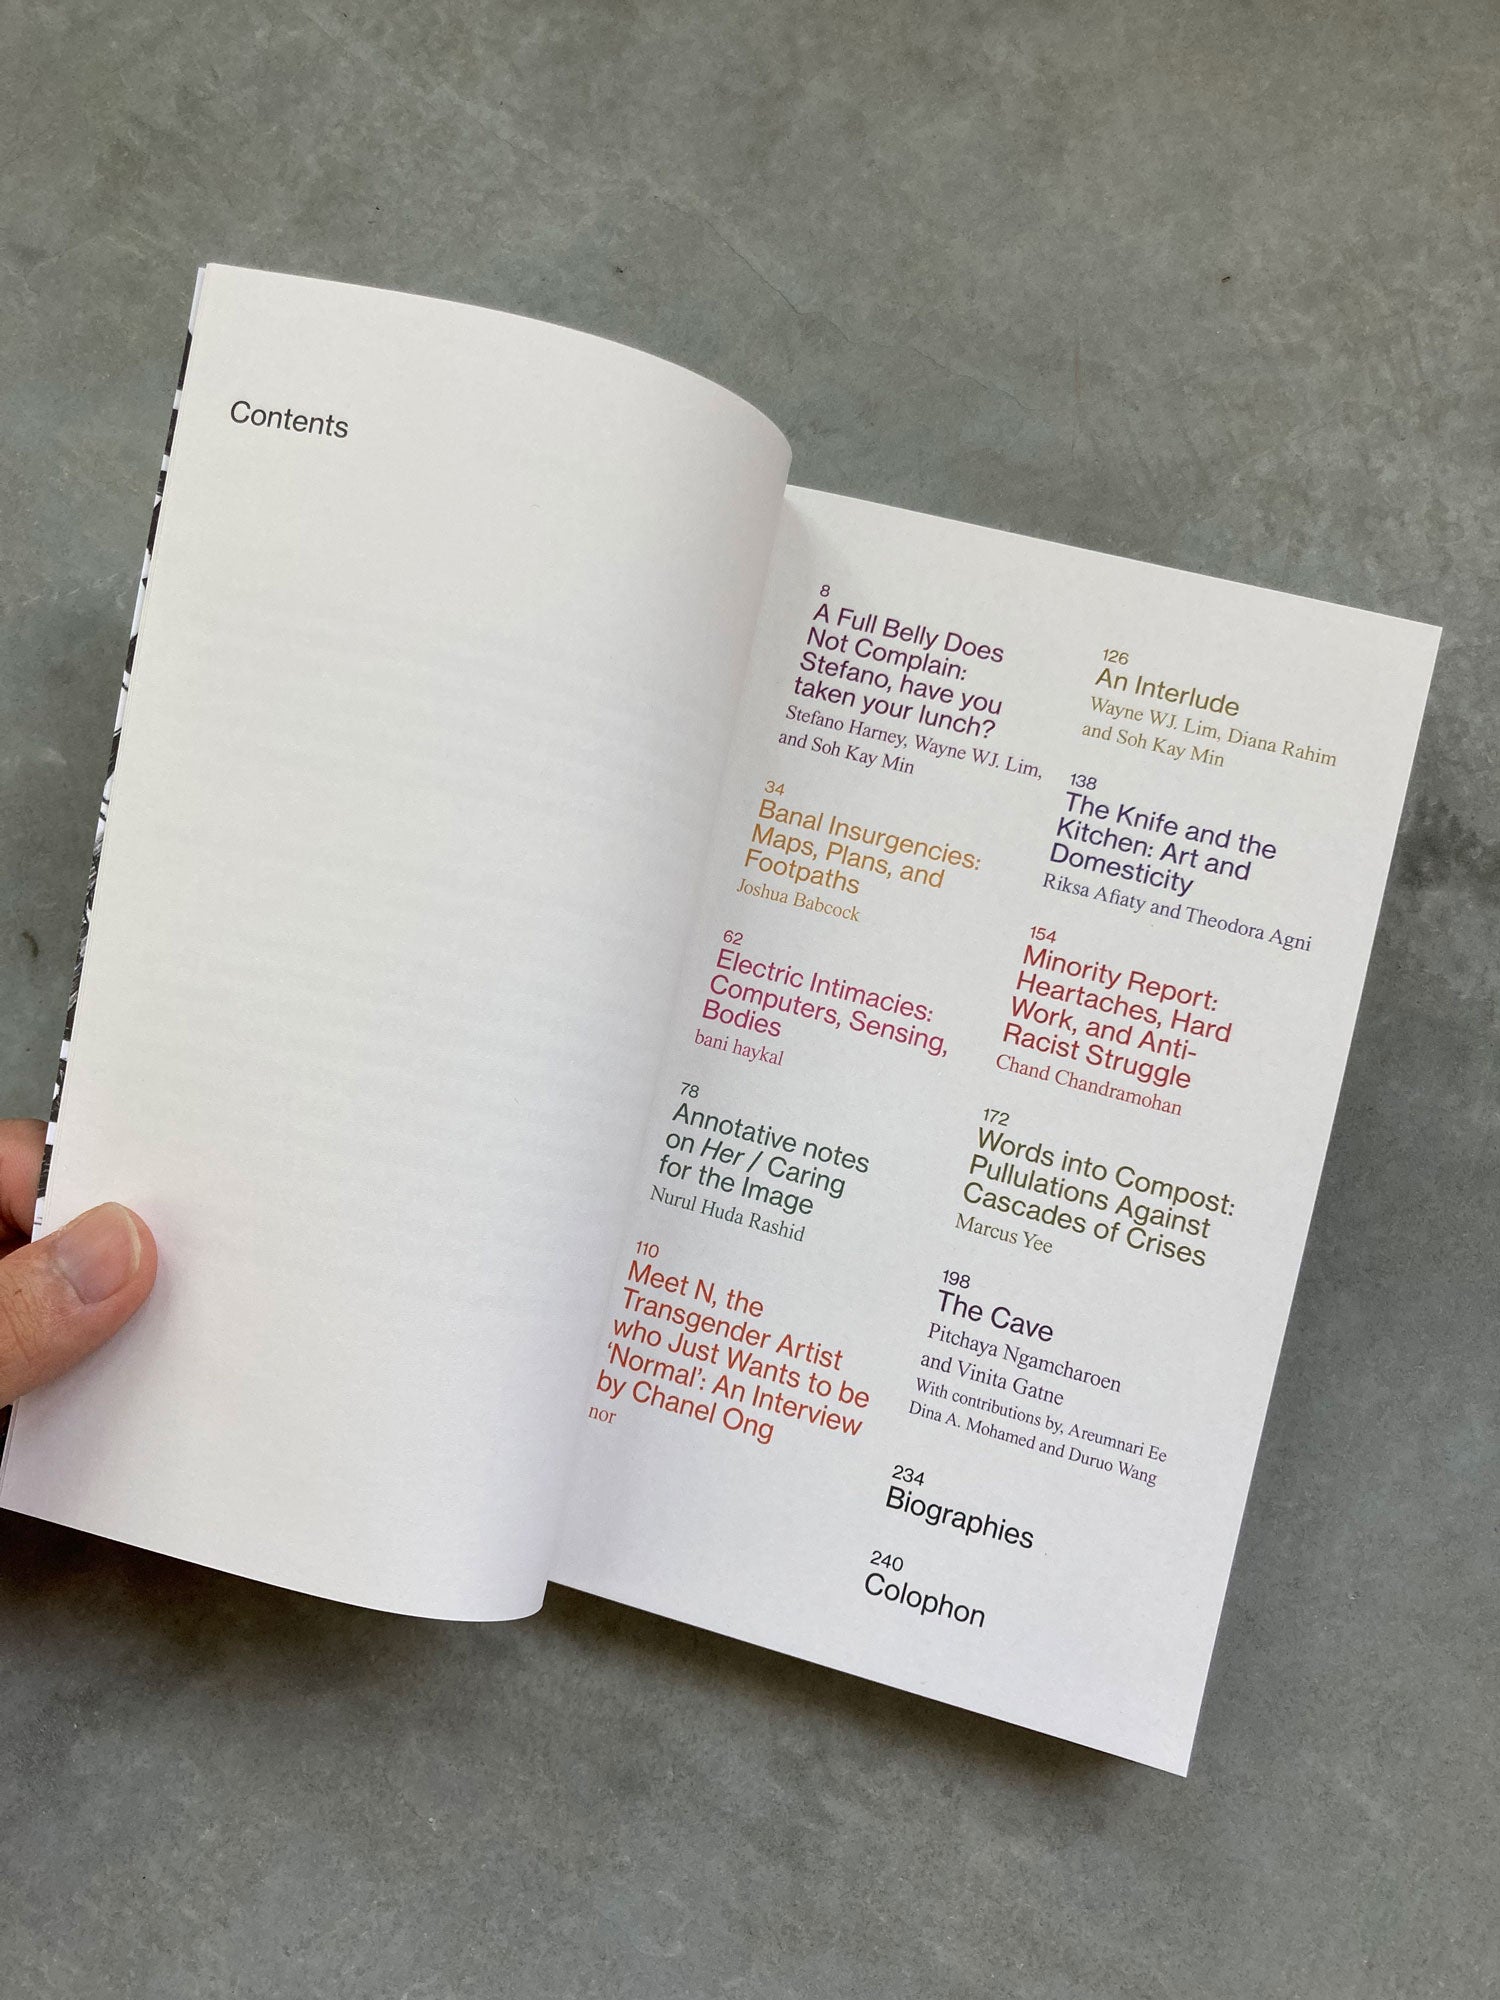 Contents
8
A Full Belly Does
Not Complain:
Stefano, have you
taken your lunch?
Stefano Harney, Wayne WJ. Lim,
and Soh Kay Min
34
Banal Insurgencies:
Maps, Plans, and
Footpaths
Joshua Babcock
62
Electric Intimacies:
Computers, Sensing,
Bodies
bani haykal
78
Annotative notes
on Her / Caring
for the Image
Nurul Huda Rashid
110
Meet N, the
Transgender Artist
who Just Wants to be
‘Normal’: An Interview
by Chanel Ong
nor
126
An Interlude
Wayne WJ. Lim, Diana Rahim
and Soh Kay Min
138
The Knife and the
Kitchen: Art and
Domesticity
Riksa Afiaty and Theodora Agni
154
Minority Report:
Heartaches, Hard
Work, and Anti-
Racist Struggle
Chand Chandramohan
172
Words into Compost:
Pullulations Against
Cascades of Crises
Marcus Yee
198
The Cave
Pitchaya Ngamcharoen
and Vinita Gatne
With contributions by, Areumnari Ee
Dina A. Mohamed and Duruo Wang
234
Biographies
240
Colophon